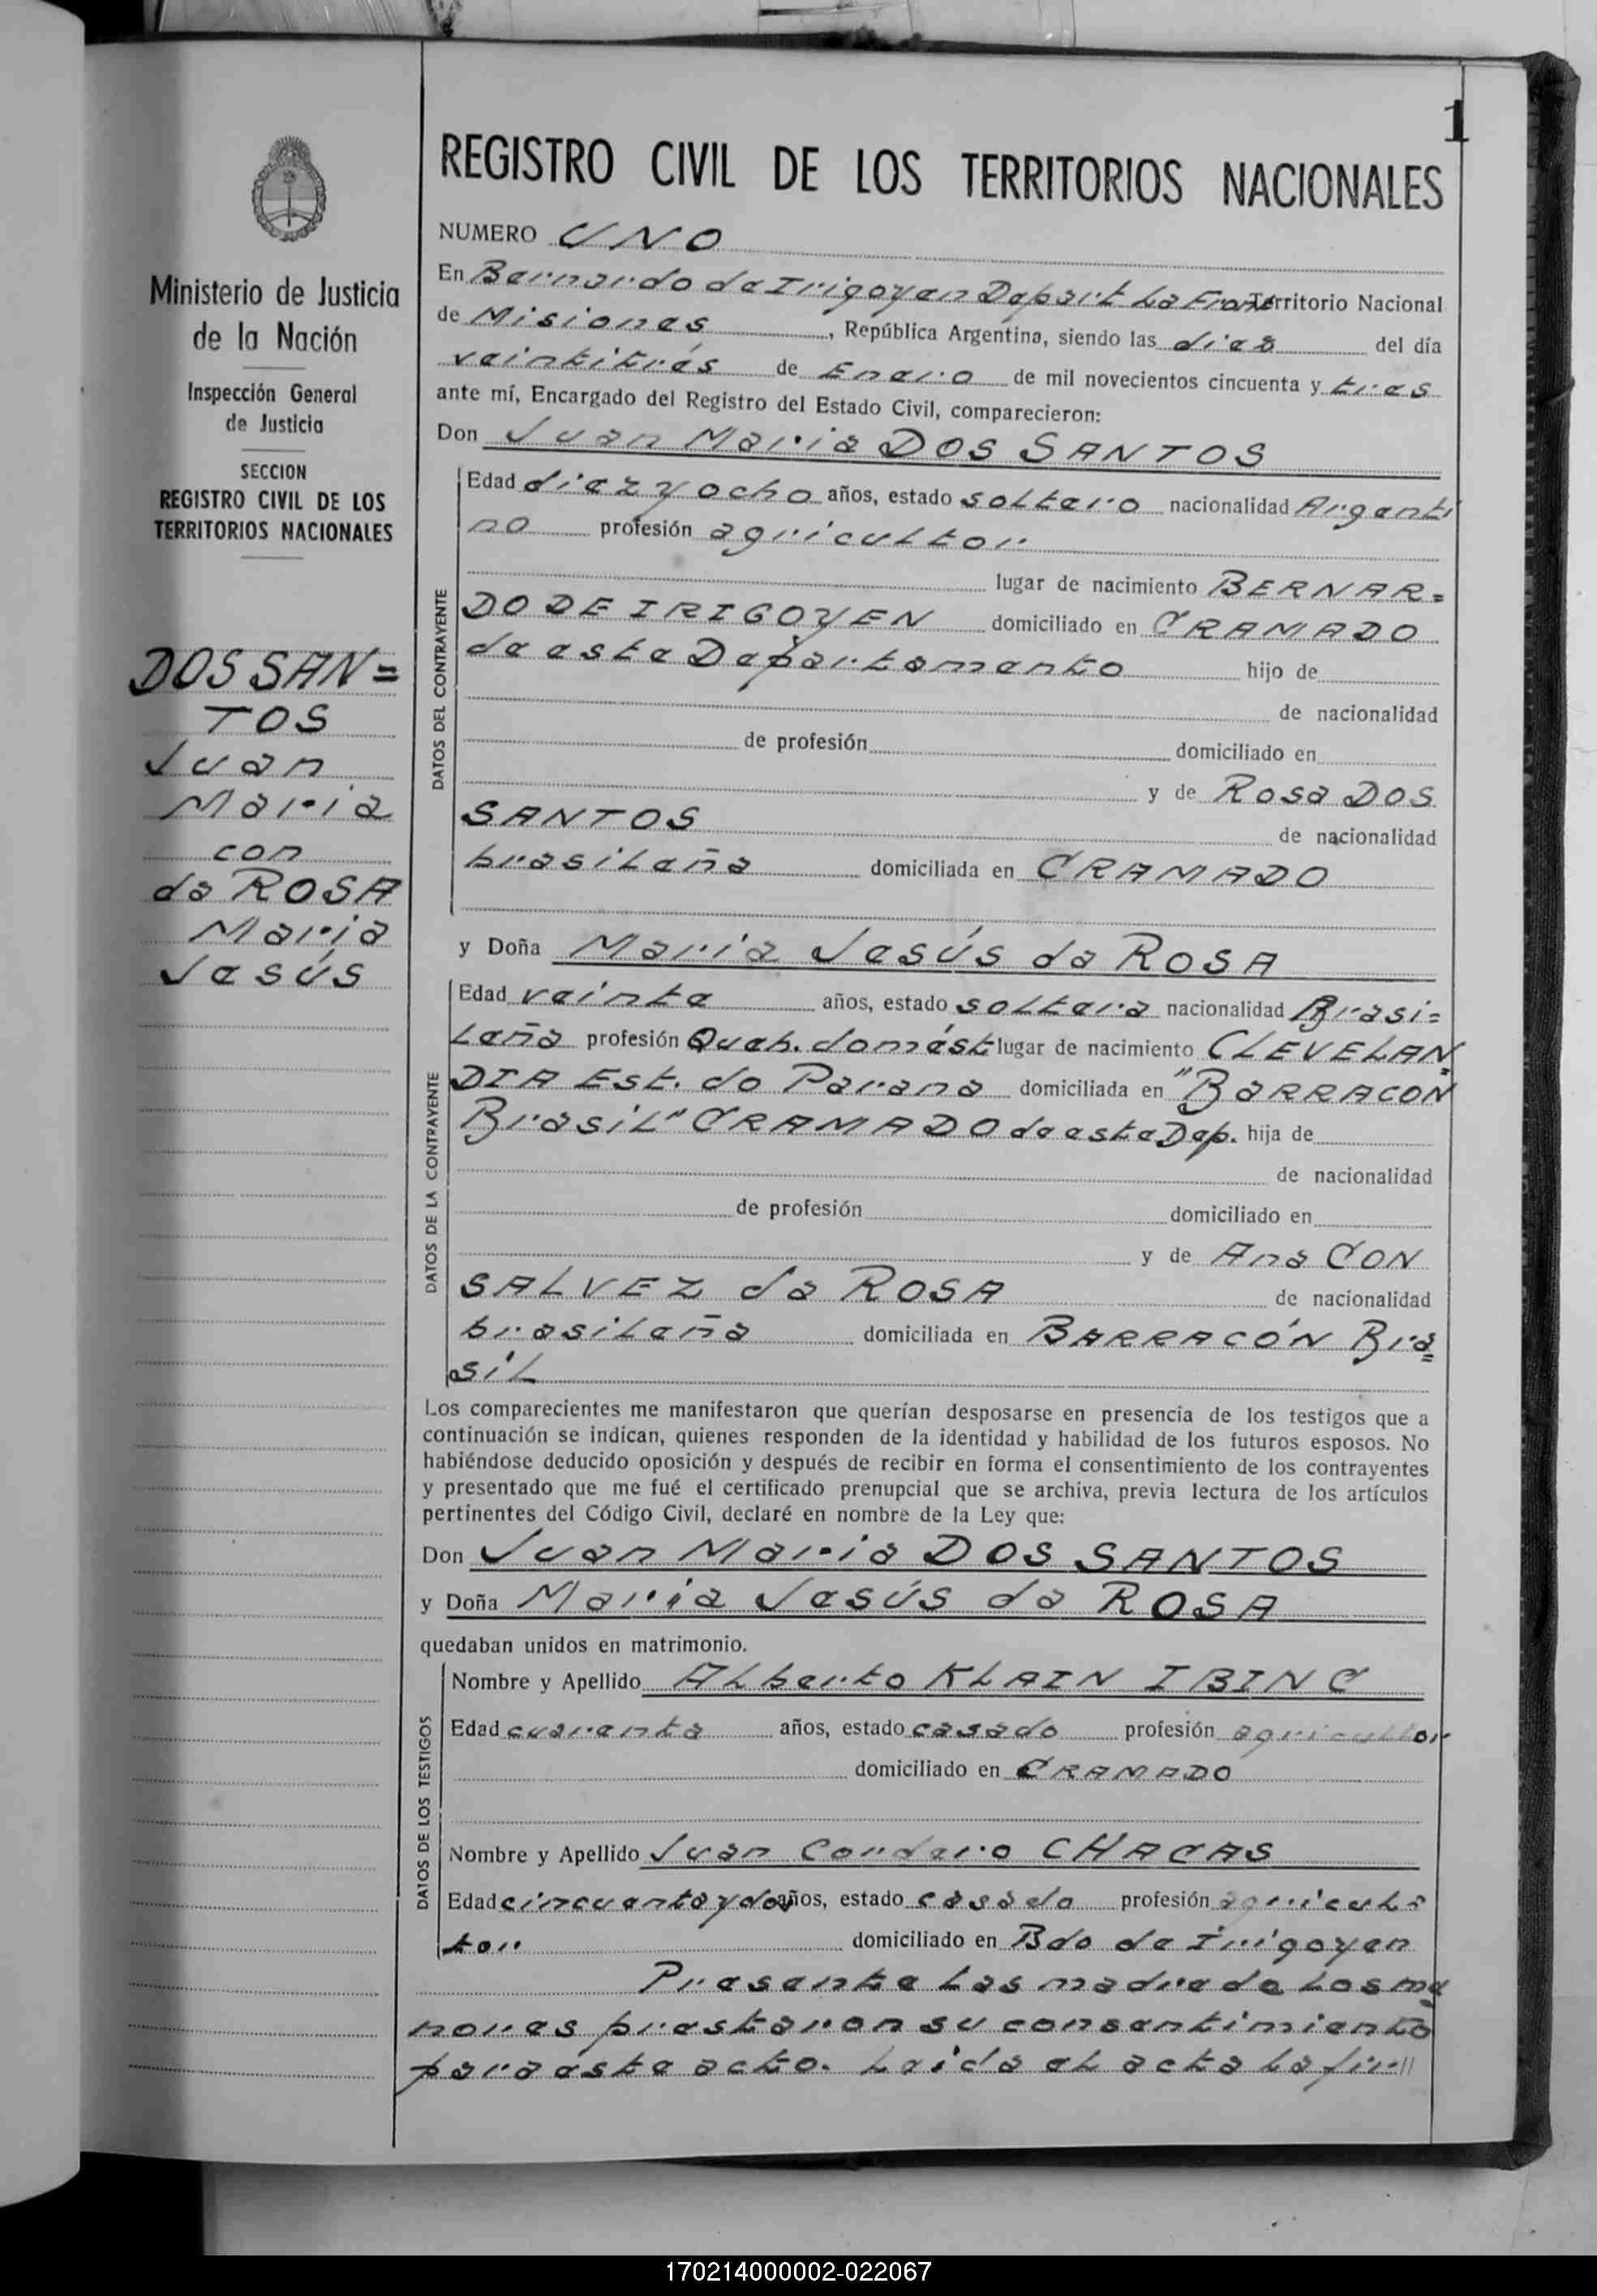 1
REGISTRO CIVIL DE LOS TERRITORIOS NACIONALES
Ministerio de Justicia
de la Nación
Inspección General
de Justicia
SECCION
REGISTRO CIVIL DE LOS
TERRITORIOS NACIONALES
DOS SAN=
TOS
Juan
Maria
con
da ROSA
Maria
Jesús
NUMERO UNO
En Bernardo de Irigoyen Depart La Front Territorio Nacional
de Misiones, República Argentina, siendo las diez del día
veintitrés de Enero de mil novecientos cincuenta y tres
ante mí, Encargado del Registro del Estado Civil, comparecieron:
Don Juan Maria DOS SANTOS
DATOS DEL CONTRAYENTE
Edad diez y ocho años, estado soltero nacionalidad Argenti
no profesión agricultor
lugar de nacimiento BERNAR=
DO DE IRIGOYEN domiciliado en GRAMADO
de este Departamento hijo de
de nacionalidad
de profesión domiciliado en
y de Rosa DOS
SANTOS de nacionalidad
brasileña domiciliada en GRAMADO
y Doña Maria Jesús da ROSA
DATOS DE LA CONTRAYENTE
Edad veinte años, estado soltera nacionalidad Brasi=
leña profesión Queh. domést lugar de nacimiento CLEVELAN=
DIA Est. do Parana domiciliada en "BARRACON
Brasil" GRAMADO de este Dep. hija de
de nacionalidad
de profesión domiciliado en
y de Ana GON
SALVEZ da ROSA de nacionalidad
brasileña domiciliada en BARRACÓN Bra=
sil
Los comparecientes me manifestaron que querían desposarse en presencia de los testigos que a
continuación se indican, quienes responden de la identidad y habilidad de los futuros esposos. No
habiéndose deducido oposición y después de recibir en forma el consentimiento de los contrayentes
y presentado que me fué el certificado prenupcial que se archiva, previa lectura de los artículos
pertinentes del Código Civil, declaré en nombre de la Ley que:
Don Juan Maria DOS SANTOS
y Doña Maria Jesús da ROSA
quedaban unidos en matrimonio.
DATOS DE LOS TESTIGOS
Nombre y Apellido Alberto KLAIN IBING
Edad cuarenta años, estado casado profesión agricultor
domiciliado en GRAMADO
Nombre y Apellido Juan Cordero CHAGAS
Edad cincuenta y dos años, estado casado profesión agricul=
tor domiciliado en Bdo de Irigoyen
Presente las madre de los me
nores prestaron su consentimiento
para este acto. Leida el acta la fir//
170214000002-022067